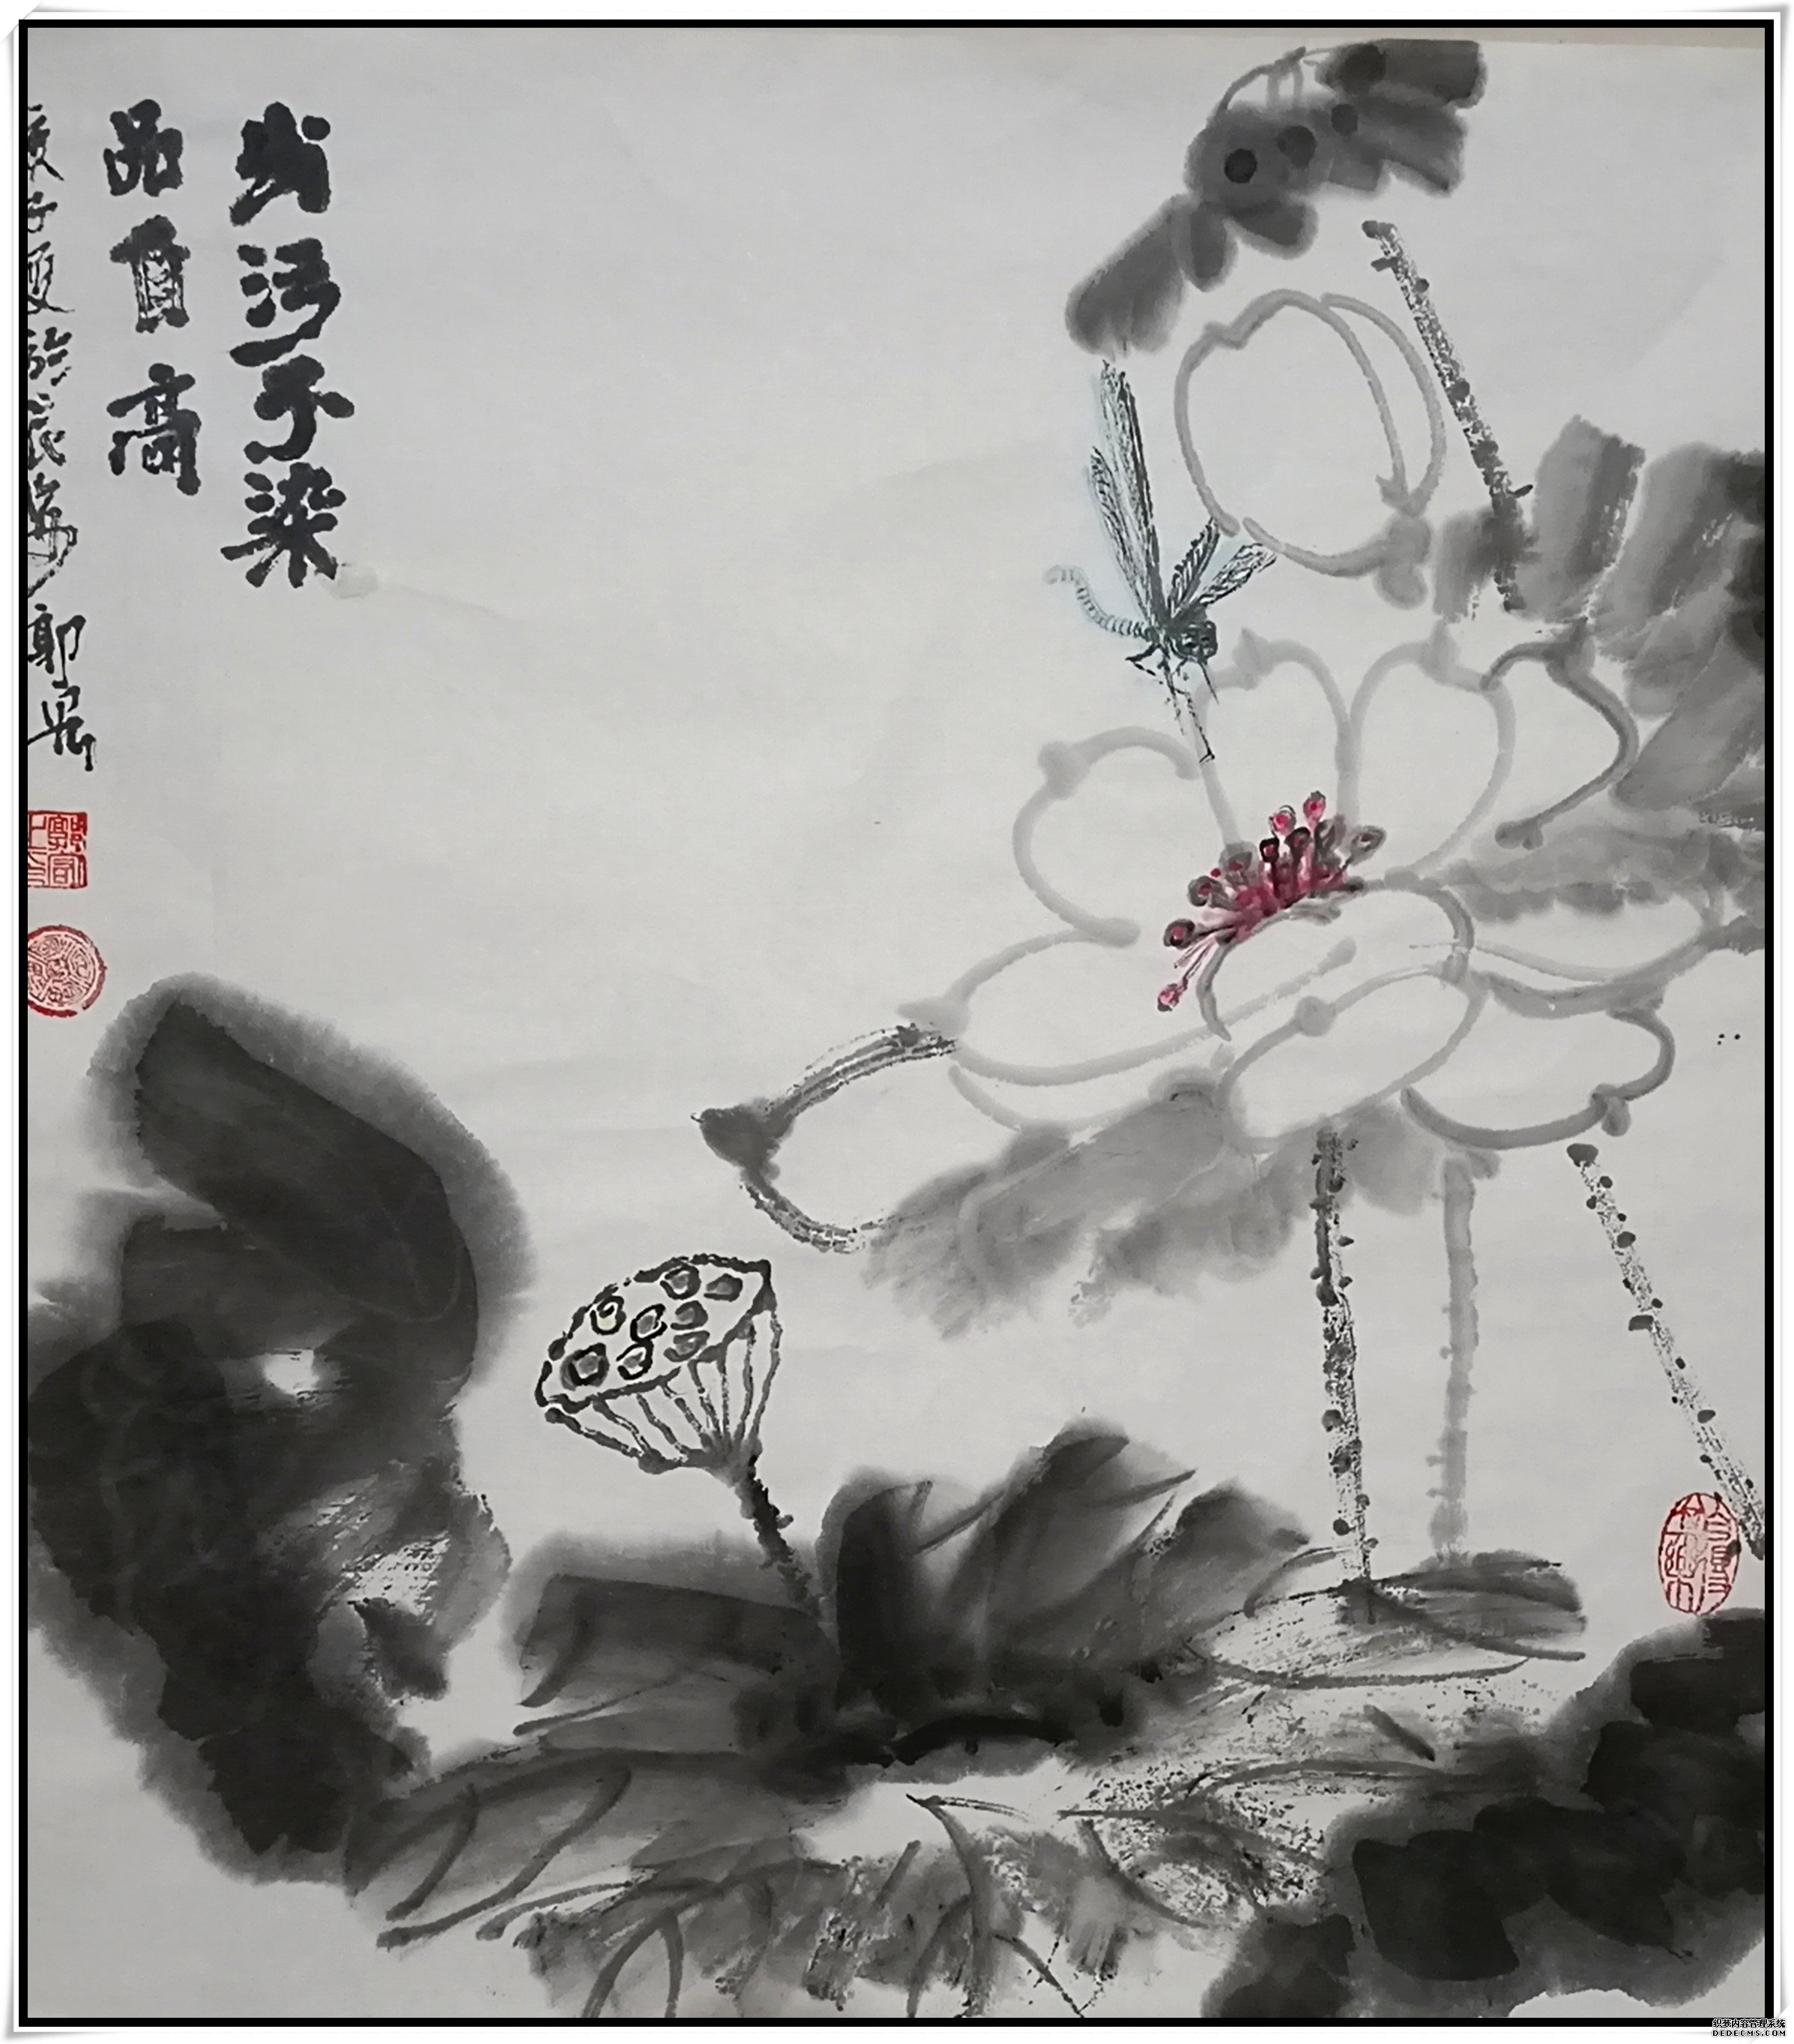 出污不染
品自高
庚子夏於長安 郭
织梦内容管理系统
DEDECMS.COM